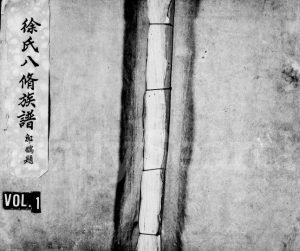 徐氏八脩族譜
VOL. 1